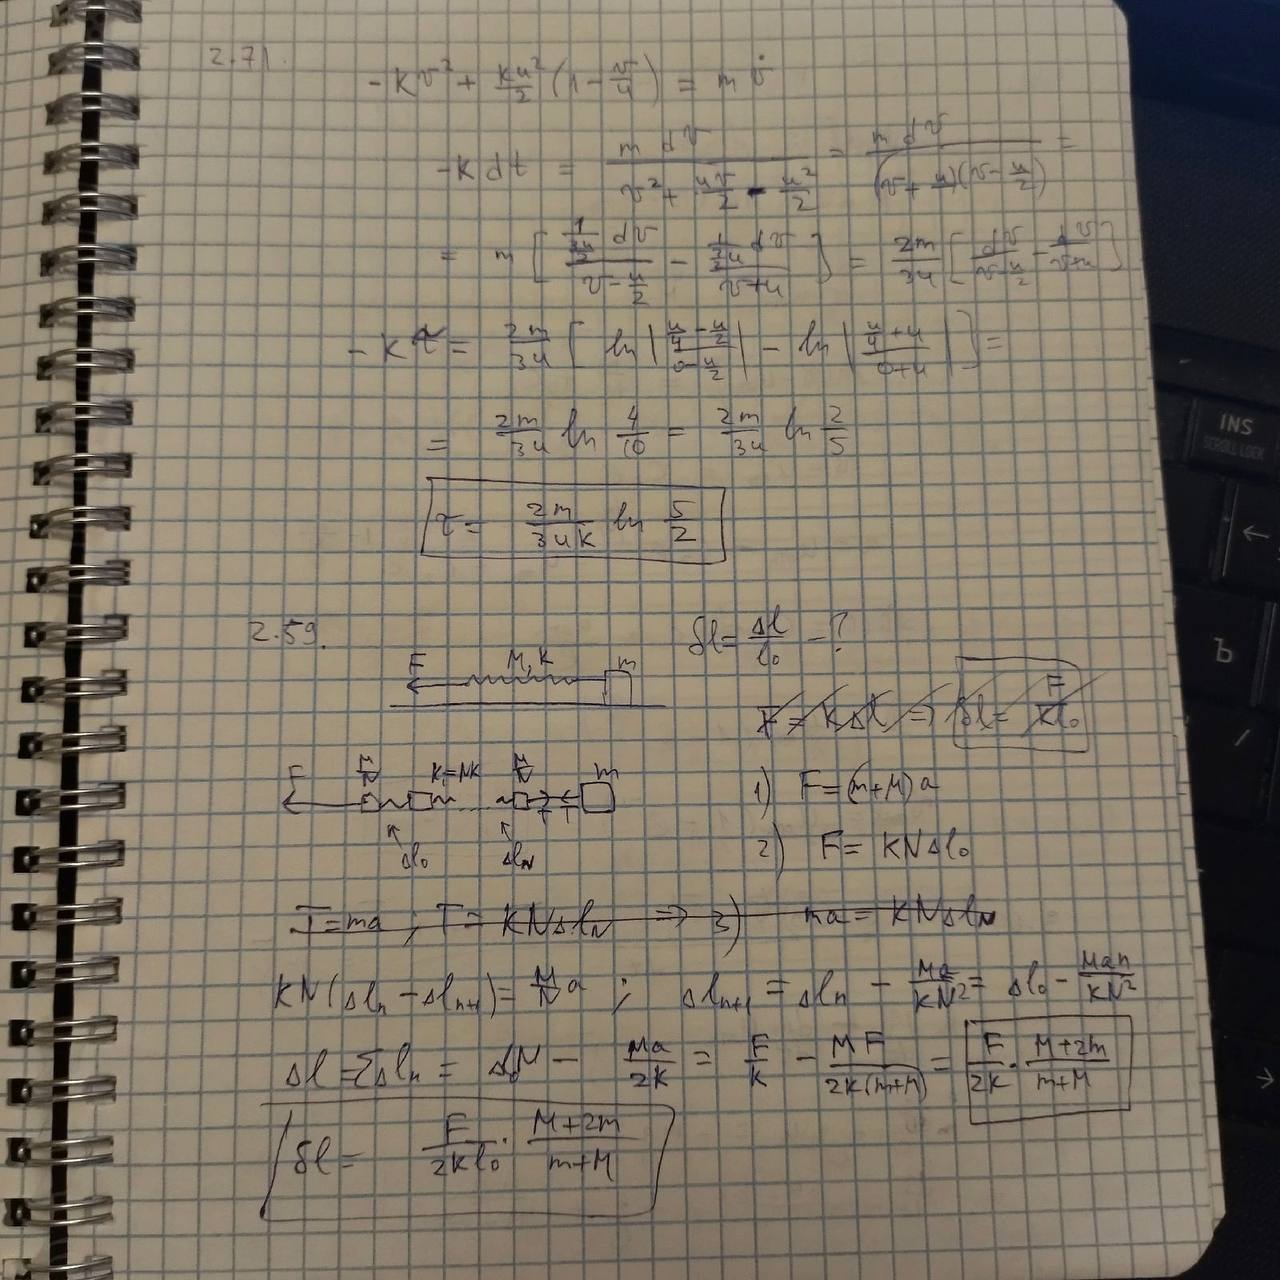 2.71.
-kv² + ku²/2 (1 - v/u) = m v̇
-k dt = m dv / (v² + uv/2 - u²/2) = m dv / ((v + u)(v - u/2)) =
= m [ (1/(3u/2)) dv / (v - u/2) - (1/(3/2 u)) dv / (v + u) ] = 2m/3u [ dv/(v - u/2) - dv/(v+u) ]
-kτ = 2m/3u [ ln | (u/4 - u/2) / (0 - u/2) | - ln | (u/4 + u) / (0 + u) | ] =
= 2m/3u ln 4/10 = 2m/3u ln 2/5
τ = 2m/3uk ln 5/2
2.59.
δl = Δl/l₀ - ?
F M, k m
F = kΔl ⇒ δl = F/kl₀
F M/N K=NK M/N m
T T
Δl₀ Δl_N
1) F = (m+M)a
2) F = kNΔl₀
T = ma ; T = kNΔl_N ⇒ 3) ma = kNΔl_N
kN(Δl_n - Δl_{n+1}) = M/N a ; Δl_{n+1} = Δl_n - Ma/kN² = Δl₀ - Man/kN²
Δl = ΣΔl_n = Δl₀N - Ma/2k = F/k - MF/2k(m+M) = F/2k · (M+2m)/(m+M)
δl = F/2kl₀ · (M+2m)/(m+M)
INS
SCROLL LOCK
←
Ъ
/
→